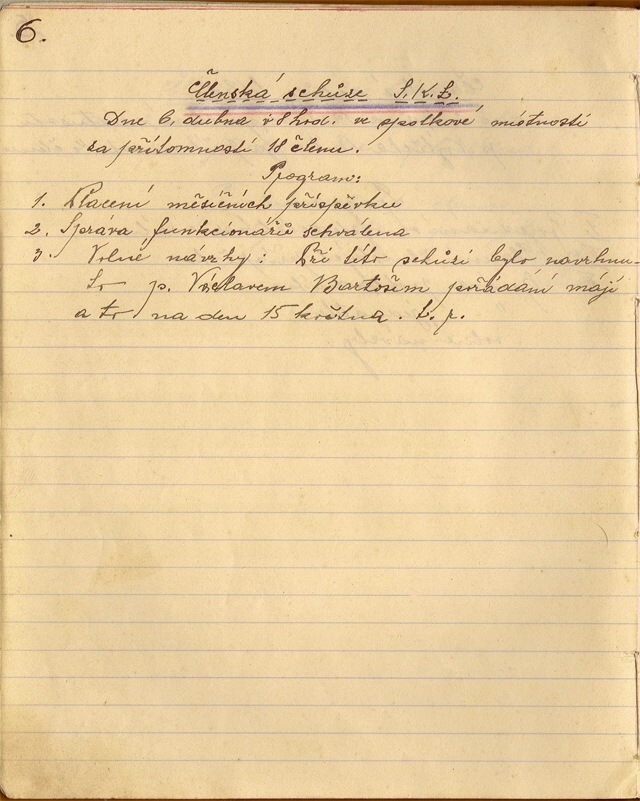 6.
Členská schůze S.K.L.
Dne 6. dubna v 8 hod. ve spolkové místností
za přítomností 18 členu.
Program:
1. Placení měsíčních příspěvku
2. Správa funkcionářů schválena
3. Volné návrhy: Při této schůzi bylo navrhnu-
to p. Václavem Bartošem pořádání májí
a to na den 15 května. t. r.